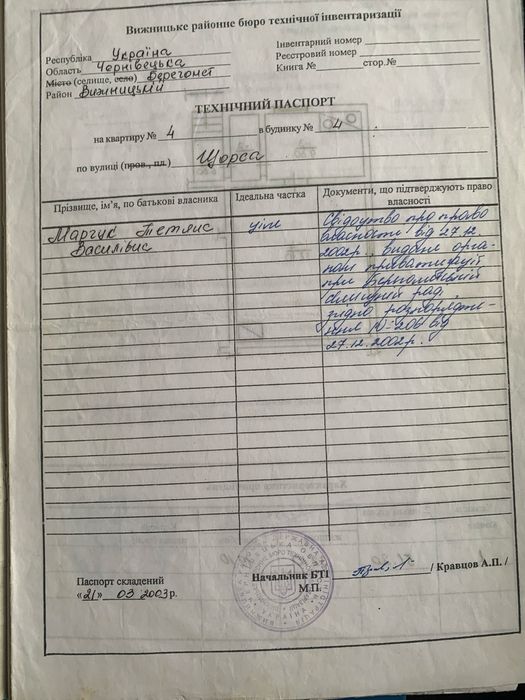 Вижницьке районне бюро технічної інвентаризації
Республіка Україна
Область Чернівецька
Місто (селище, село) Берегомет
Район Вижницький
Інвентарний номер
Реєстровий номер
Книга № стор.№
ТЕХНІЧНИЙ ПАСПОРТ
на квартиру № 4 в будинку № 4
по вулиці (пров., пл.) Щорса
Прізвище, ім'я, по батькові власника
Ідеальна частка
Документи, що підтверджують право власності
Марчук Тетяна
Василівна
ціле
Свідоцтво про право
власності від 27.12.
2002р. видане орга-
ном приватизації
при Берегометській
селищній рад,
згідно розпорядже-
ння №206 від
27.12.2002р.
Паспорт складений
«21» 03 2003 р.
Начальник БТІ / Кравцов А.П. /
М.П.